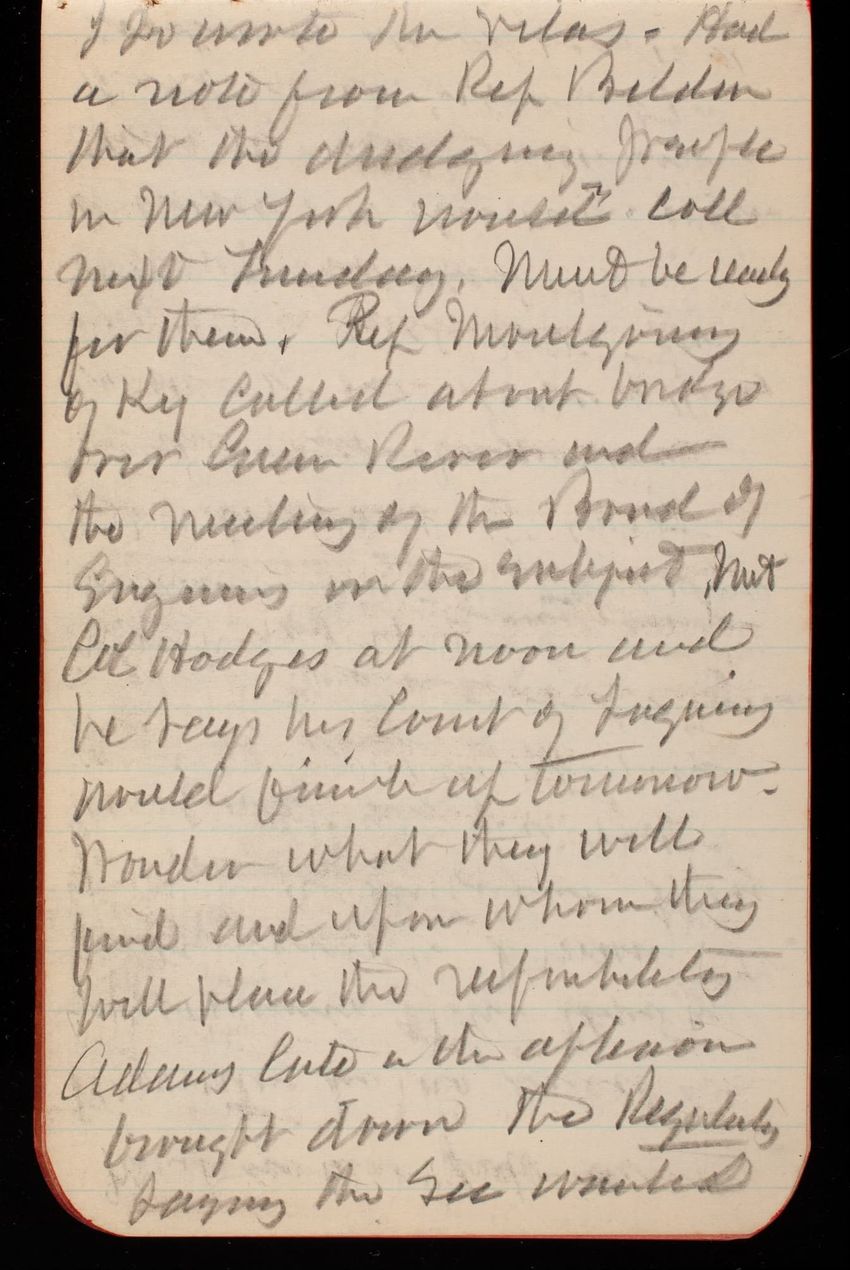 I wrote Mr Vilas - Had
a note from Rep Belden
that the dredging people
in New York would call
next Tuesday. Must be ready
for them. Rep Montgomery
of Ky called about bridge
over Green River and
the meeting of the Board of
Engineers on the subject, Met
Col Hodges at noon and
he says his Court of Inquiry
would finish up tomorrow.
Wonder what they will
find and upon whom they
will place the responsibility
Adams late in the afternoon
brought down the
saying the Sec wanted